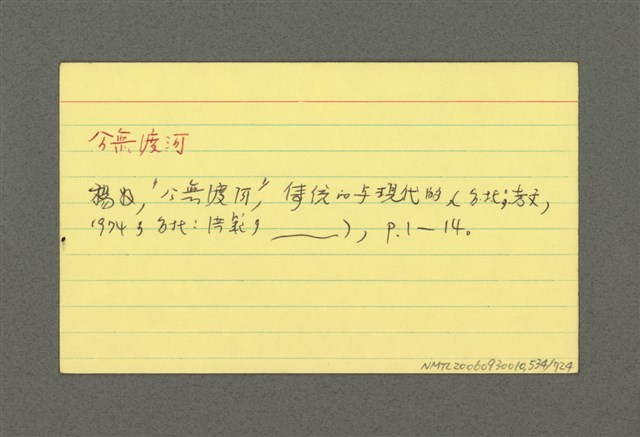 公無渡河
楊牧,“公無渡河,”傳統的与現代的 (台北;志文,
1974;台北:洪範, ______), p.1—14。
NMTL20060930010,534/724